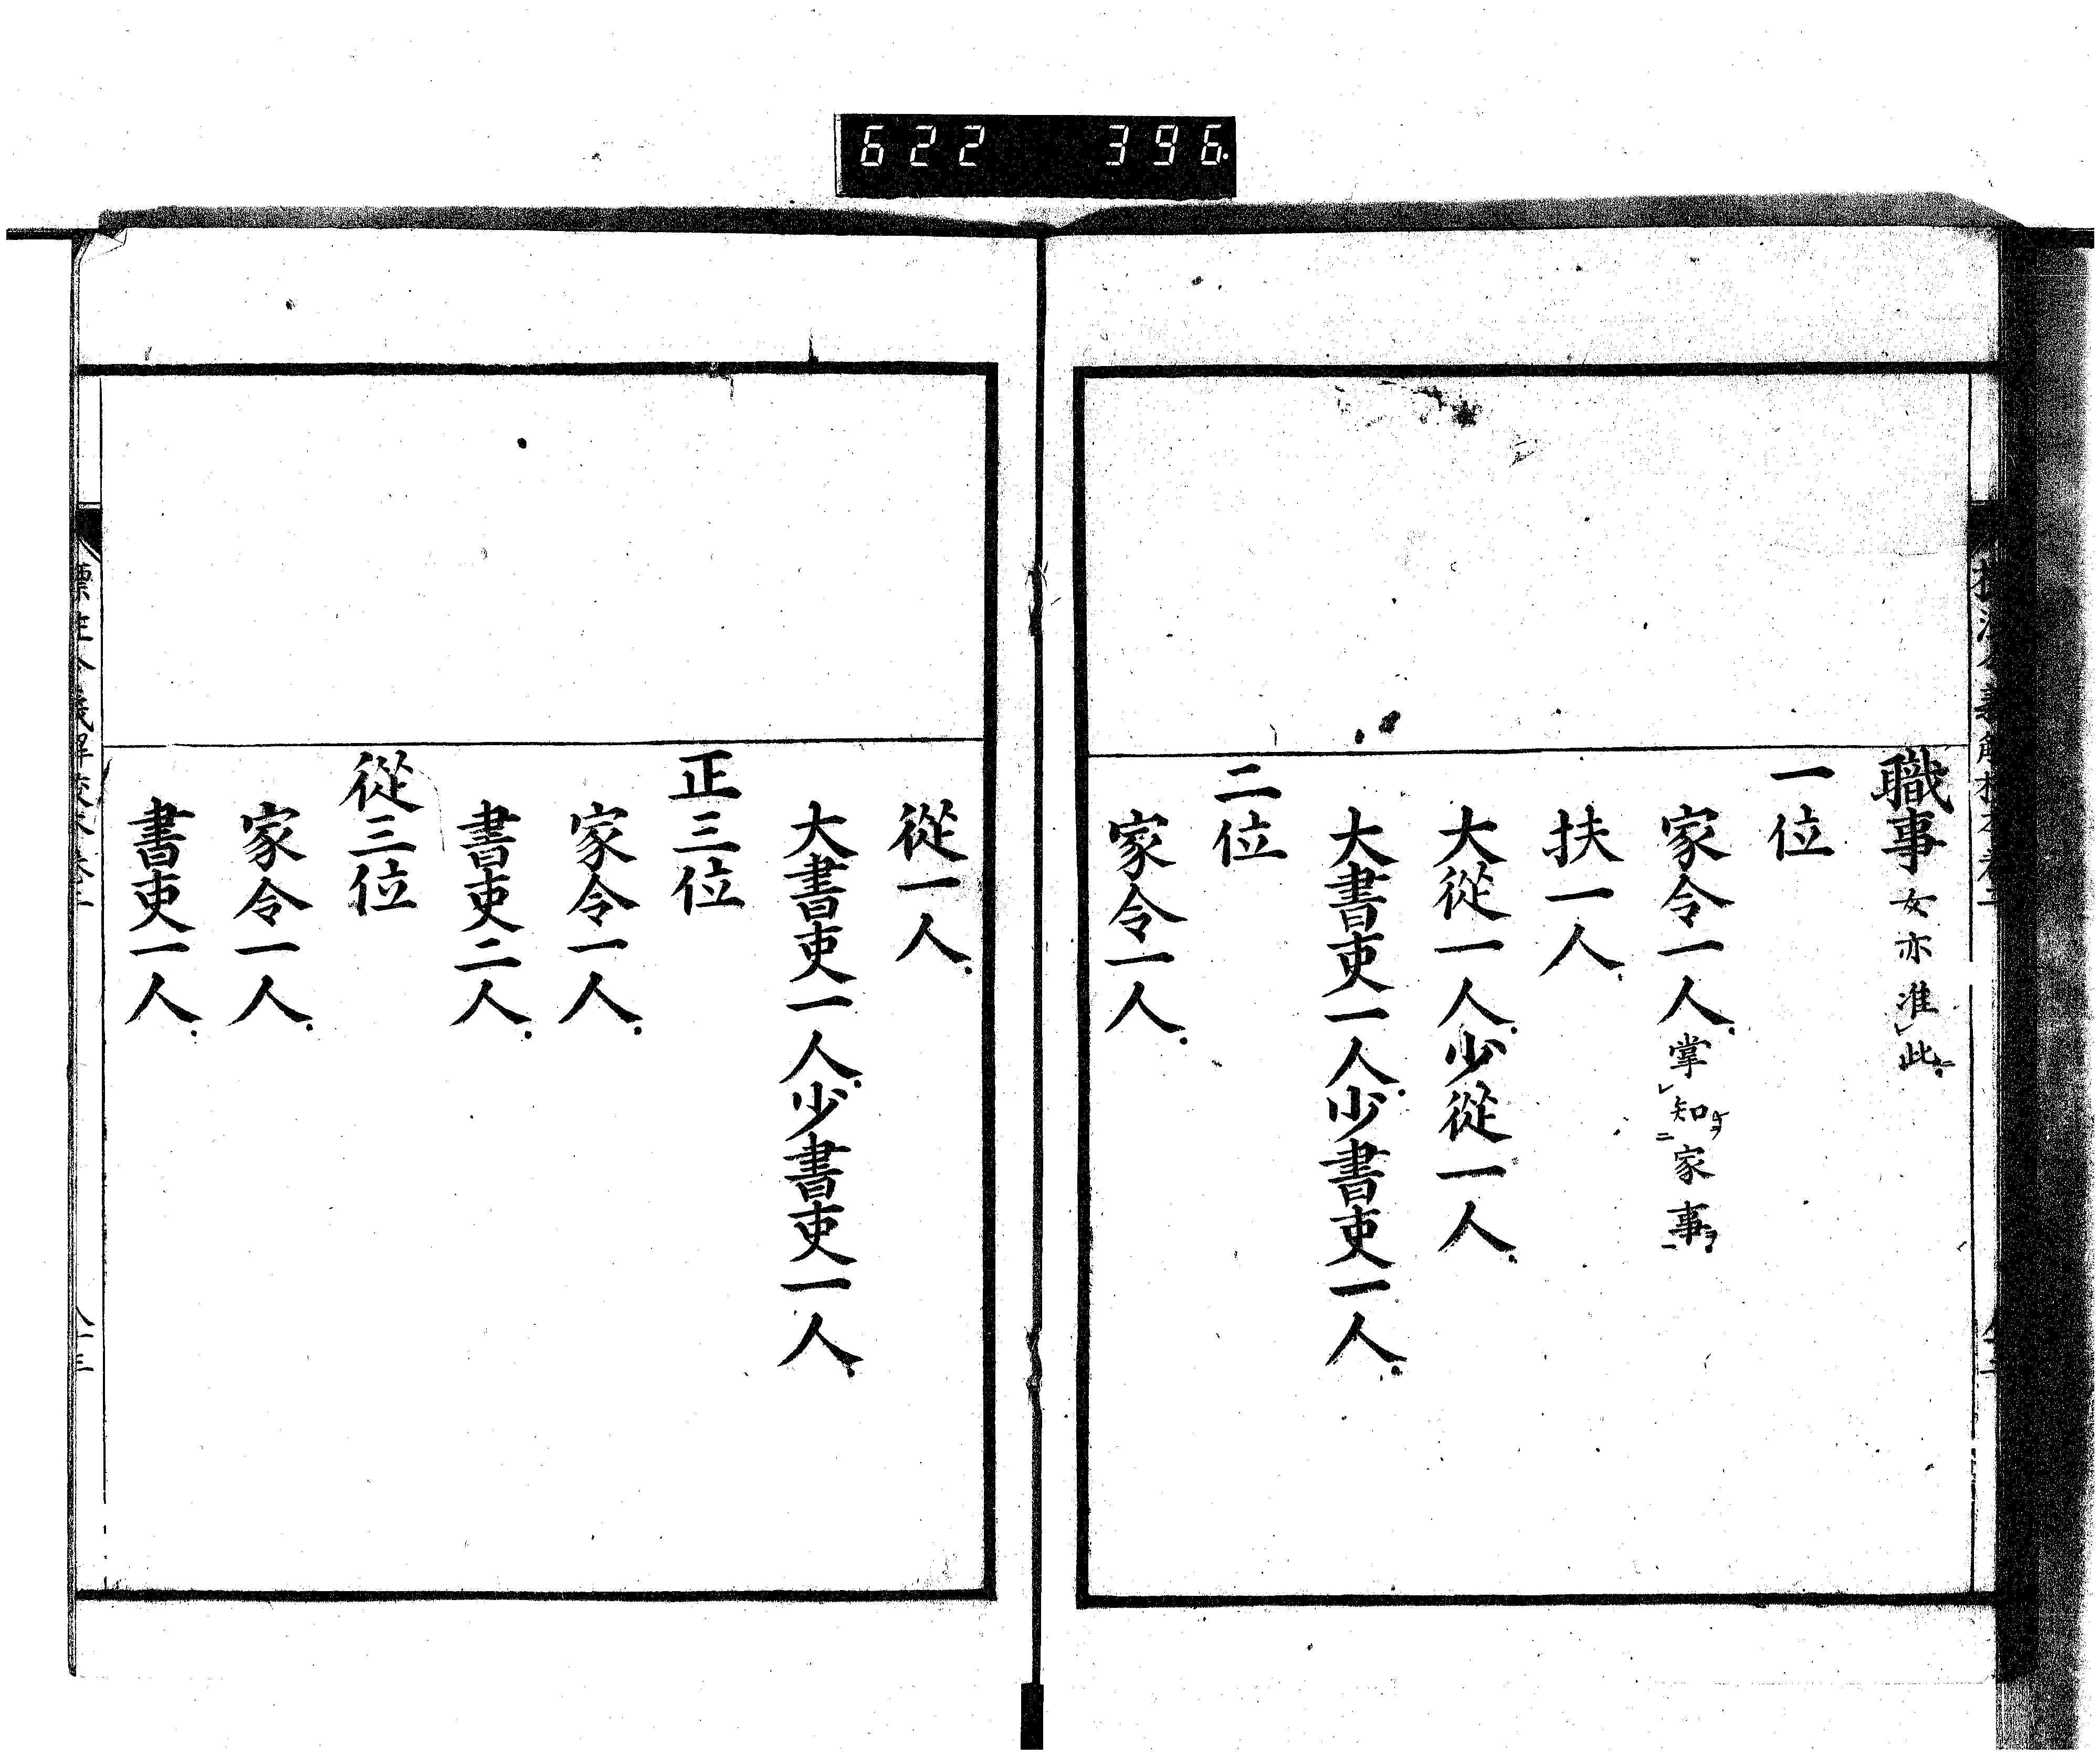 622 396
職事女亦准此
一位
家令一人掌知家事
扶一人
大從一人少從一人
大書吏一人少書吏一人
二位
家令一人
從一人
大書吏一人少書吏一人
正三位
家令一人
書吏二人
從三位
家令一人
書吏一人